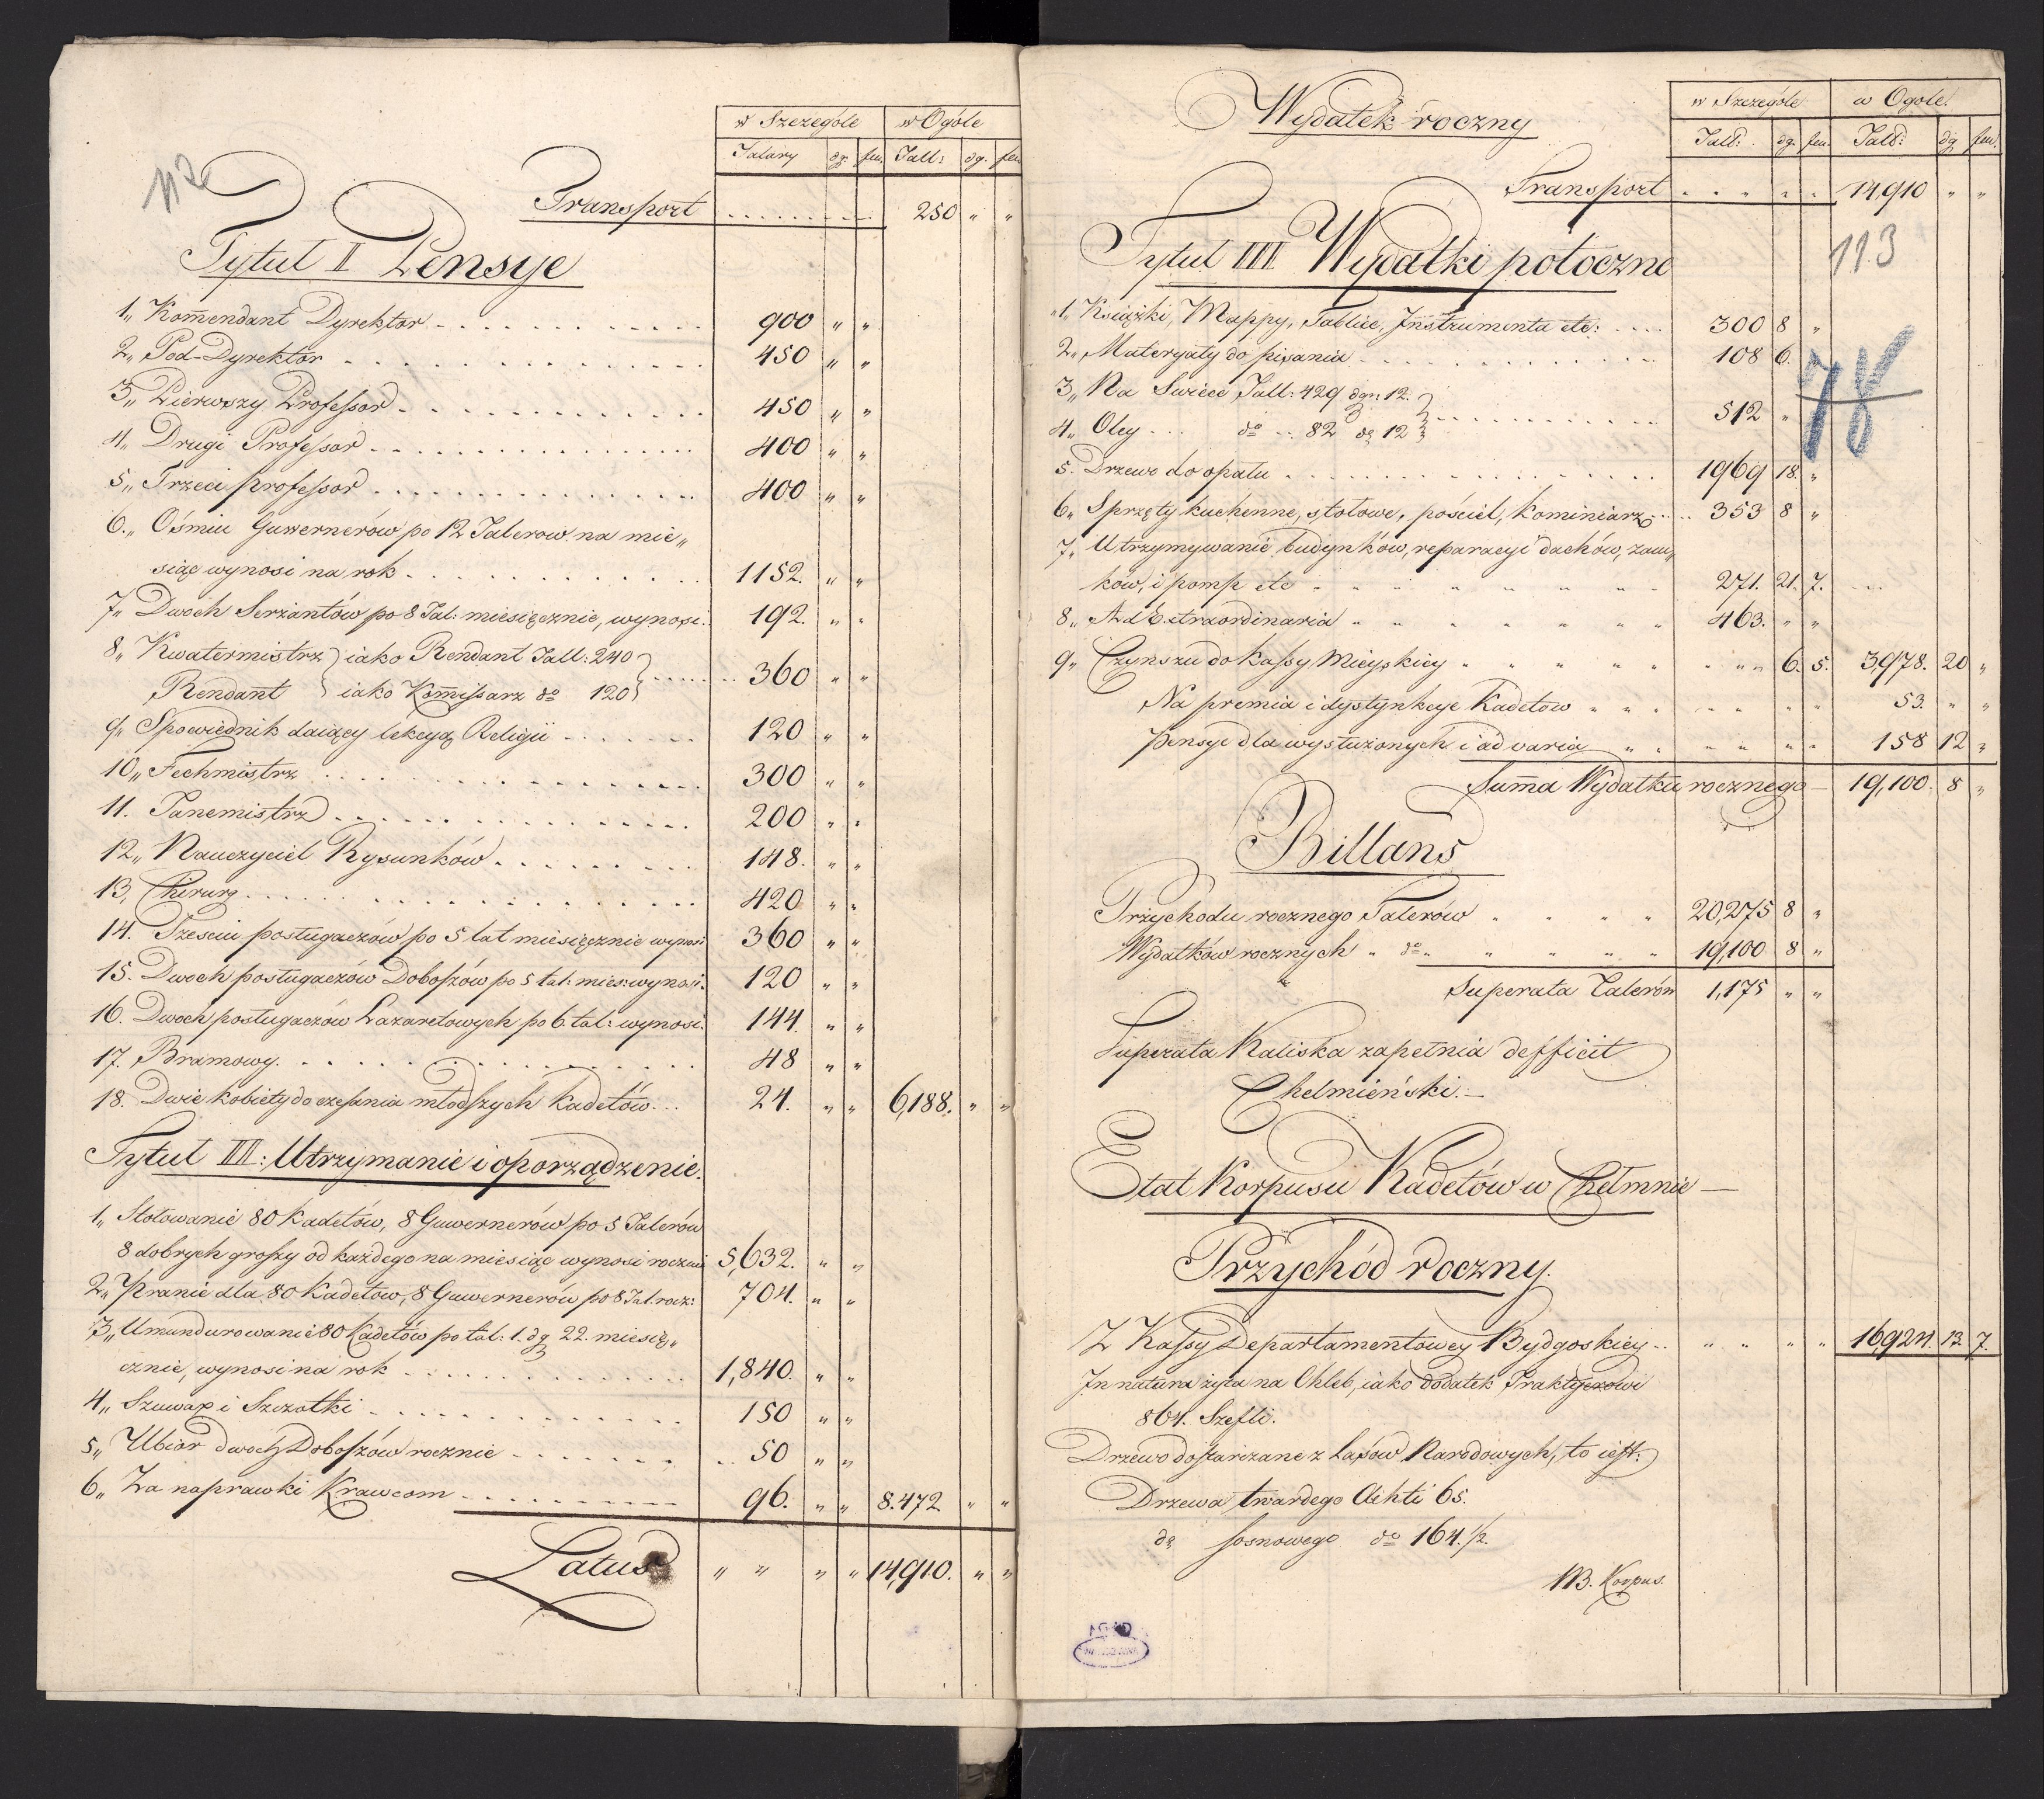 w Szczególe w Ogóle
Talary dg. fen. Tall: dg. fen
Transport . . . . . . . . 250 " "
Tytuł II Pensye
1„ Kom̃endant Dyrektor . . . . . 900 " "
2„ Pod-Dyrektor . . . . . 450 " "
3„ Pierwszy Professor . . . . . 450 " "
4„ Drugi Professor . . . . . 400 " "
5„ Trzeci professor . . . . . 400 " "
6„ Ośmiu Guwernerów po 12 Talerow na mie„
siąc wynosi na rok . . . . . 1152. " "
7„ Dwóch Serżantów po 8 Tal: miesięcznie, wynosi. 192. " "
8„ Kwatermistrz } iako Rendant Tall: 240 }
Rendant } iako Kom̃issarz do 120 } . . . . . 360 " "
9„ Spowiednik daiący lekcyą Religii . . . . . 120 " "
10„ Fechmistrz . . . . . 300 " "
11. Tancmistrz . . . . . 200 " "
12„ Nauczyciel Rysunków . . . . . 148. " "
13, Chirurg . . . . . 420 " "
14. Sześciu posługaczów po 5 tal miesięcznie wynosi 360 " "
15. Dwóch posługaczów Doboszów po 5 tal: mies: wynosi. 120 " "
16. Dwóch posługaczów Lazaretowych po 6 tal: wynosi. 144. " "
17. Bramowy . . . . . 48 " "
18. Dwie kobiety do czesania młodszych Kadetów . . . 24. " " 6,188. " "
Tytuł III: Utrzymanie i oporządzenie.
1„ Stołowanie 80 Kadetów, 8 Guwernerów po 5 Talerów
8 dobrych groszy od każdego na miesiąc wynosi rocznie 5,632. " "
2„ Pranie dla 80 Kadetów, 8 Guwernerów po 8 Tal. rocz: 704. " "
3„ Umundurowanie 80 Kadetów po tal: 1. dg 22. miesię„
cznie, wynosi na rok . . . . . 1,840. " "
4„ Szuwax i Szczotki . . . . . 150 " "
5„ Ubiór dwóch Doboszów rocznie . . . . . 50 " "
6„ Za naprawki Krawcom . . . . . 96. " " 8.472 " "
Latus " " " " 14,910. " "
Wydatek roczny
w Szczególe w Ogóle.
Tall: dg. fen. Tall: dg fen.
Transport . . . . . 14,910 " "
113
Tytuł III Wydatki potoczne
78
„1„ Książki, Mappy, Tablice, Instrumenta etc: . . . . 300 8 "
2„ Materyały do pisania . . . . . 108 6.
3„ Na Swiece Tall: 429 dgr: 12. }
4„ Oley . . . do . . 82 dg 12 } . . . . . 512 "
5. Drzewo do opału . . . . . 1969 18. "
6„ Sprzęty kuchenne, stołowe, pościel, Kominiarz . . . 353 8 "
7„ Utrzymywanie budynków, reparacyi dachów, zam„
ków, i pomp etc " " " 271. 21. 7.
8„ Ad Extraordinaria " " " 463. " "
9„ Czynszu do Kassy Mieyskiey " " " 6. 5. 3,978. 20 "
Na premia i dystynkcye Kadetow " " " 53. " "
pensye dla wysłużonych i ad varia " " " 158 12 "
Sum̃a Wydatku rocznego 19,100. 8 "
Billans
Przychodu rocznego Talerów " " " 20,275 8 "
Wydatków rocznych " do " " " 19,100 8 "
Superata Talerów 1,175 " "
Superata Kaliska zapełnia defficit
Chelmieński. —
Etat Korpusu Kadetów w Chełmnie —
Przychód roczny.
Z Kassy Departamentowey Bydgoskiey . . " " " " 16,924. 13. 7.
In natura żyta na Chleb, iako dodatek Praktyczowi
864. Szefli.
Drzewo dostarczane z Lasów Narodowych, to iest:
Drzewa twardego Achti 65.
do sosnowego do 164. 1/2.
NB. Korpus.